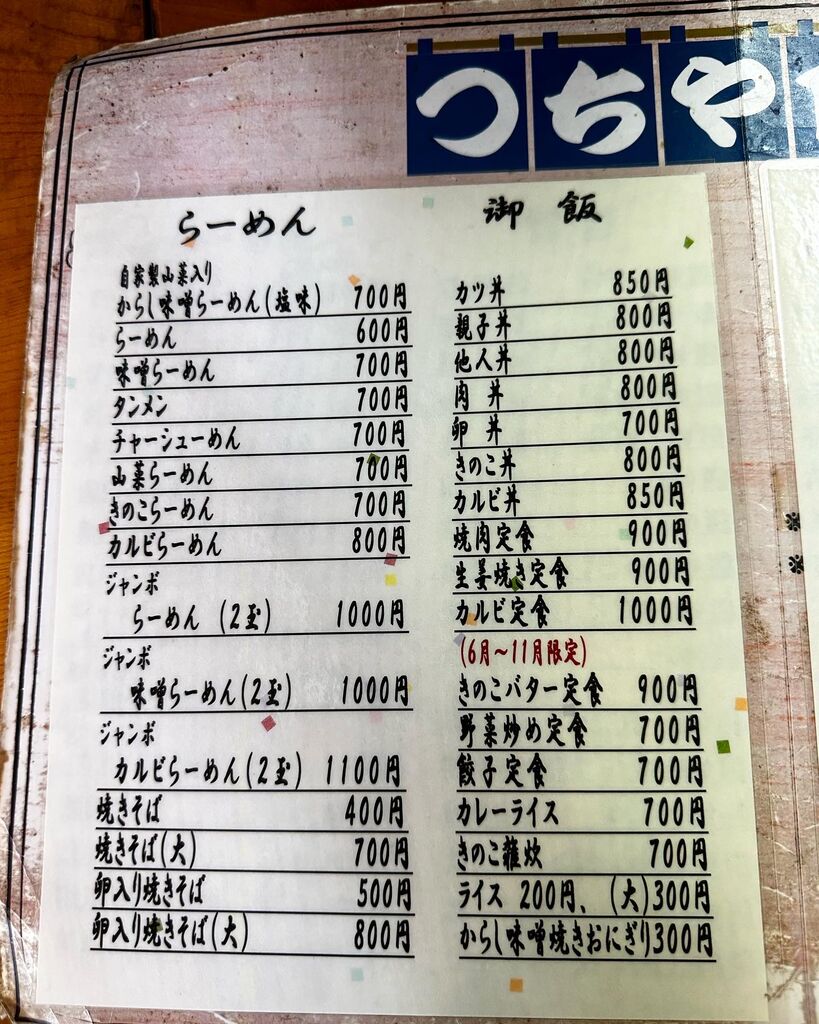 つちや
らーめん
自家製山菜入り
からし味噌らーめん(塩味) 700円
らーめん 600円
味噌らーめん 700円
タンメン 700円
チャーシューめん 700円
山菜らーめん 700円
きのこらーめん 700円
カルビらーめん 800円
ジャンボ
らーめん (2玉) 1000円
ジャンボ
味噌らーめん(2玉) 1000円
ジャンボ
カルビらーめん(2玉) 1100円
焼きそば 400円
焼きそば(大) 700円
卵入り焼きそば 500円
卵入り焼きそば(大) 800円
御飯
カツ丼 850円
親子丼 800円
他人丼 800円
肉丼 800円
卵丼 700円
きのこ丼 800円
カルビ丼 850円
焼肉定食 900円
生姜焼き定食 900円
カルビ定食 1000円
(6月～11月限定)
きのこバター定食 900円
野菜炒め定食 700円
餃子定食 700円
カレーライス 700円
きのこ雑炊 700円
ライス 200円、(大)300円
からし味噌焼きおにぎり300円
※
※